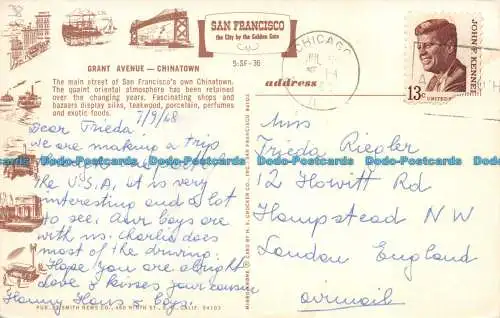 SAN FRANCISCO
the City by the Golden Gate
5-SF-36
GRANT AVENUE — CHINATOWN
The main street of San Francisco's own Chinatown.
The quaint oriental atmosphere has been retained
over the changing years. Fascinating shops and
bazaars display silks, teakwood, porcelain, perfumes
and exotic foods.
7/9/68
Dear Frieda!
We are making a trip
the U.S.A, it is very
interesting and a lot
to see. Our boys are
with us. Charlie does
most of the driving.
Hope you are alright
Love & kisses your cousin
Hanny Hans & boys.
PUB. BY SMITH NEWS CO., 460 NINTH ST., S.F., CALIF. 94103
MIRRO-KROME ® CARD BY H. S. CROCKER CO., INC., SAN FRANCISCO 94103
address
CHICAGO
JUL
JOHN F. KENNEDY
13c
UNITED
Miss
Frieda Riegler
12 Howitt Rd
Hampstead NW
London England
airmail
Dodo-Postcards Dodo-Postcards Dodo-Postcards Dodo-Postcards Dodo-Postcards